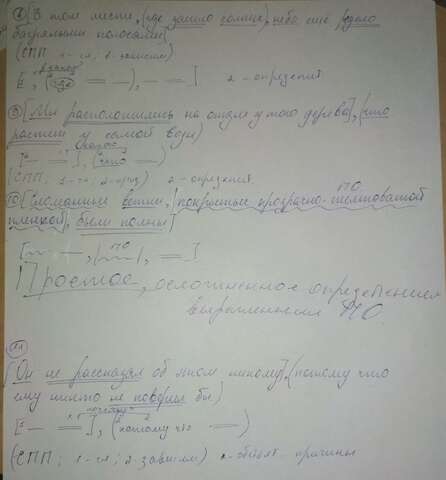 8) [В том месте, (где зашло солнце), небо ещё рдело
багряными полосами]
(СПП, 1-гл, 2-зависим)
[ , (где = —), — = ] 2 - определит
9) [Мы расположились на отдых у того дерева], (что
растёт у самой воды)
[— =], (что =)
(СПП; 1-гл; 2-прид) 2 - определит
10) [Сломанные ветки, |покрытые прозрачно-желтоватой
ПО
пленкой|, были полны]
ПО
[ — , | |, = ]
Простое, осложненное определением
выраженным ПО.
11)
[Он не рассказал об этом никому], (потому что
ему никто не поверил бы)
почему?
[— =], (потому что =)
(СПП; 1-гл; 2-зависим) 2-обст причины